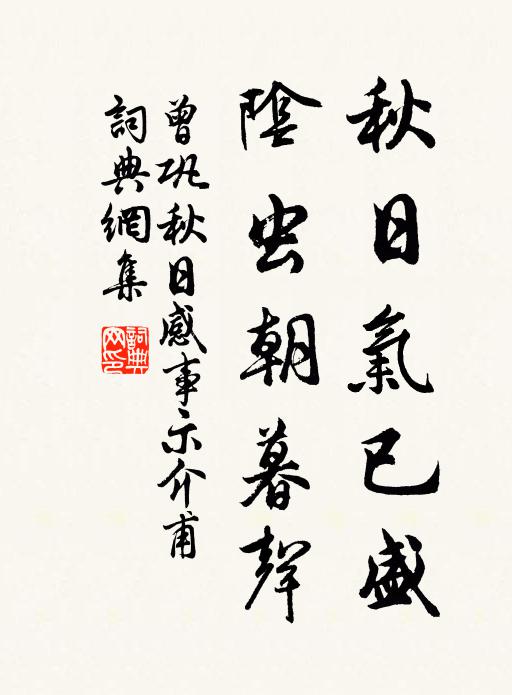 秋日氣已盛
陰虫朝暮聲
曾巩秋日感事示介甫
詞典網集
詞典
网印